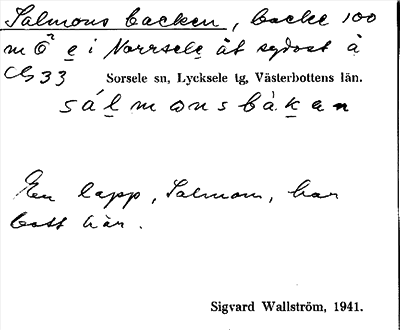 Salmons backen, backe 100
m Ö e i Norrsele åt sydost å
Cb 33 Sorsele sn, Lycksele tg, Västerbottens län.
sálmɷnsbàkan
En lapp, Salmon, har
bott här.
Sigvard Wallström, 1941.